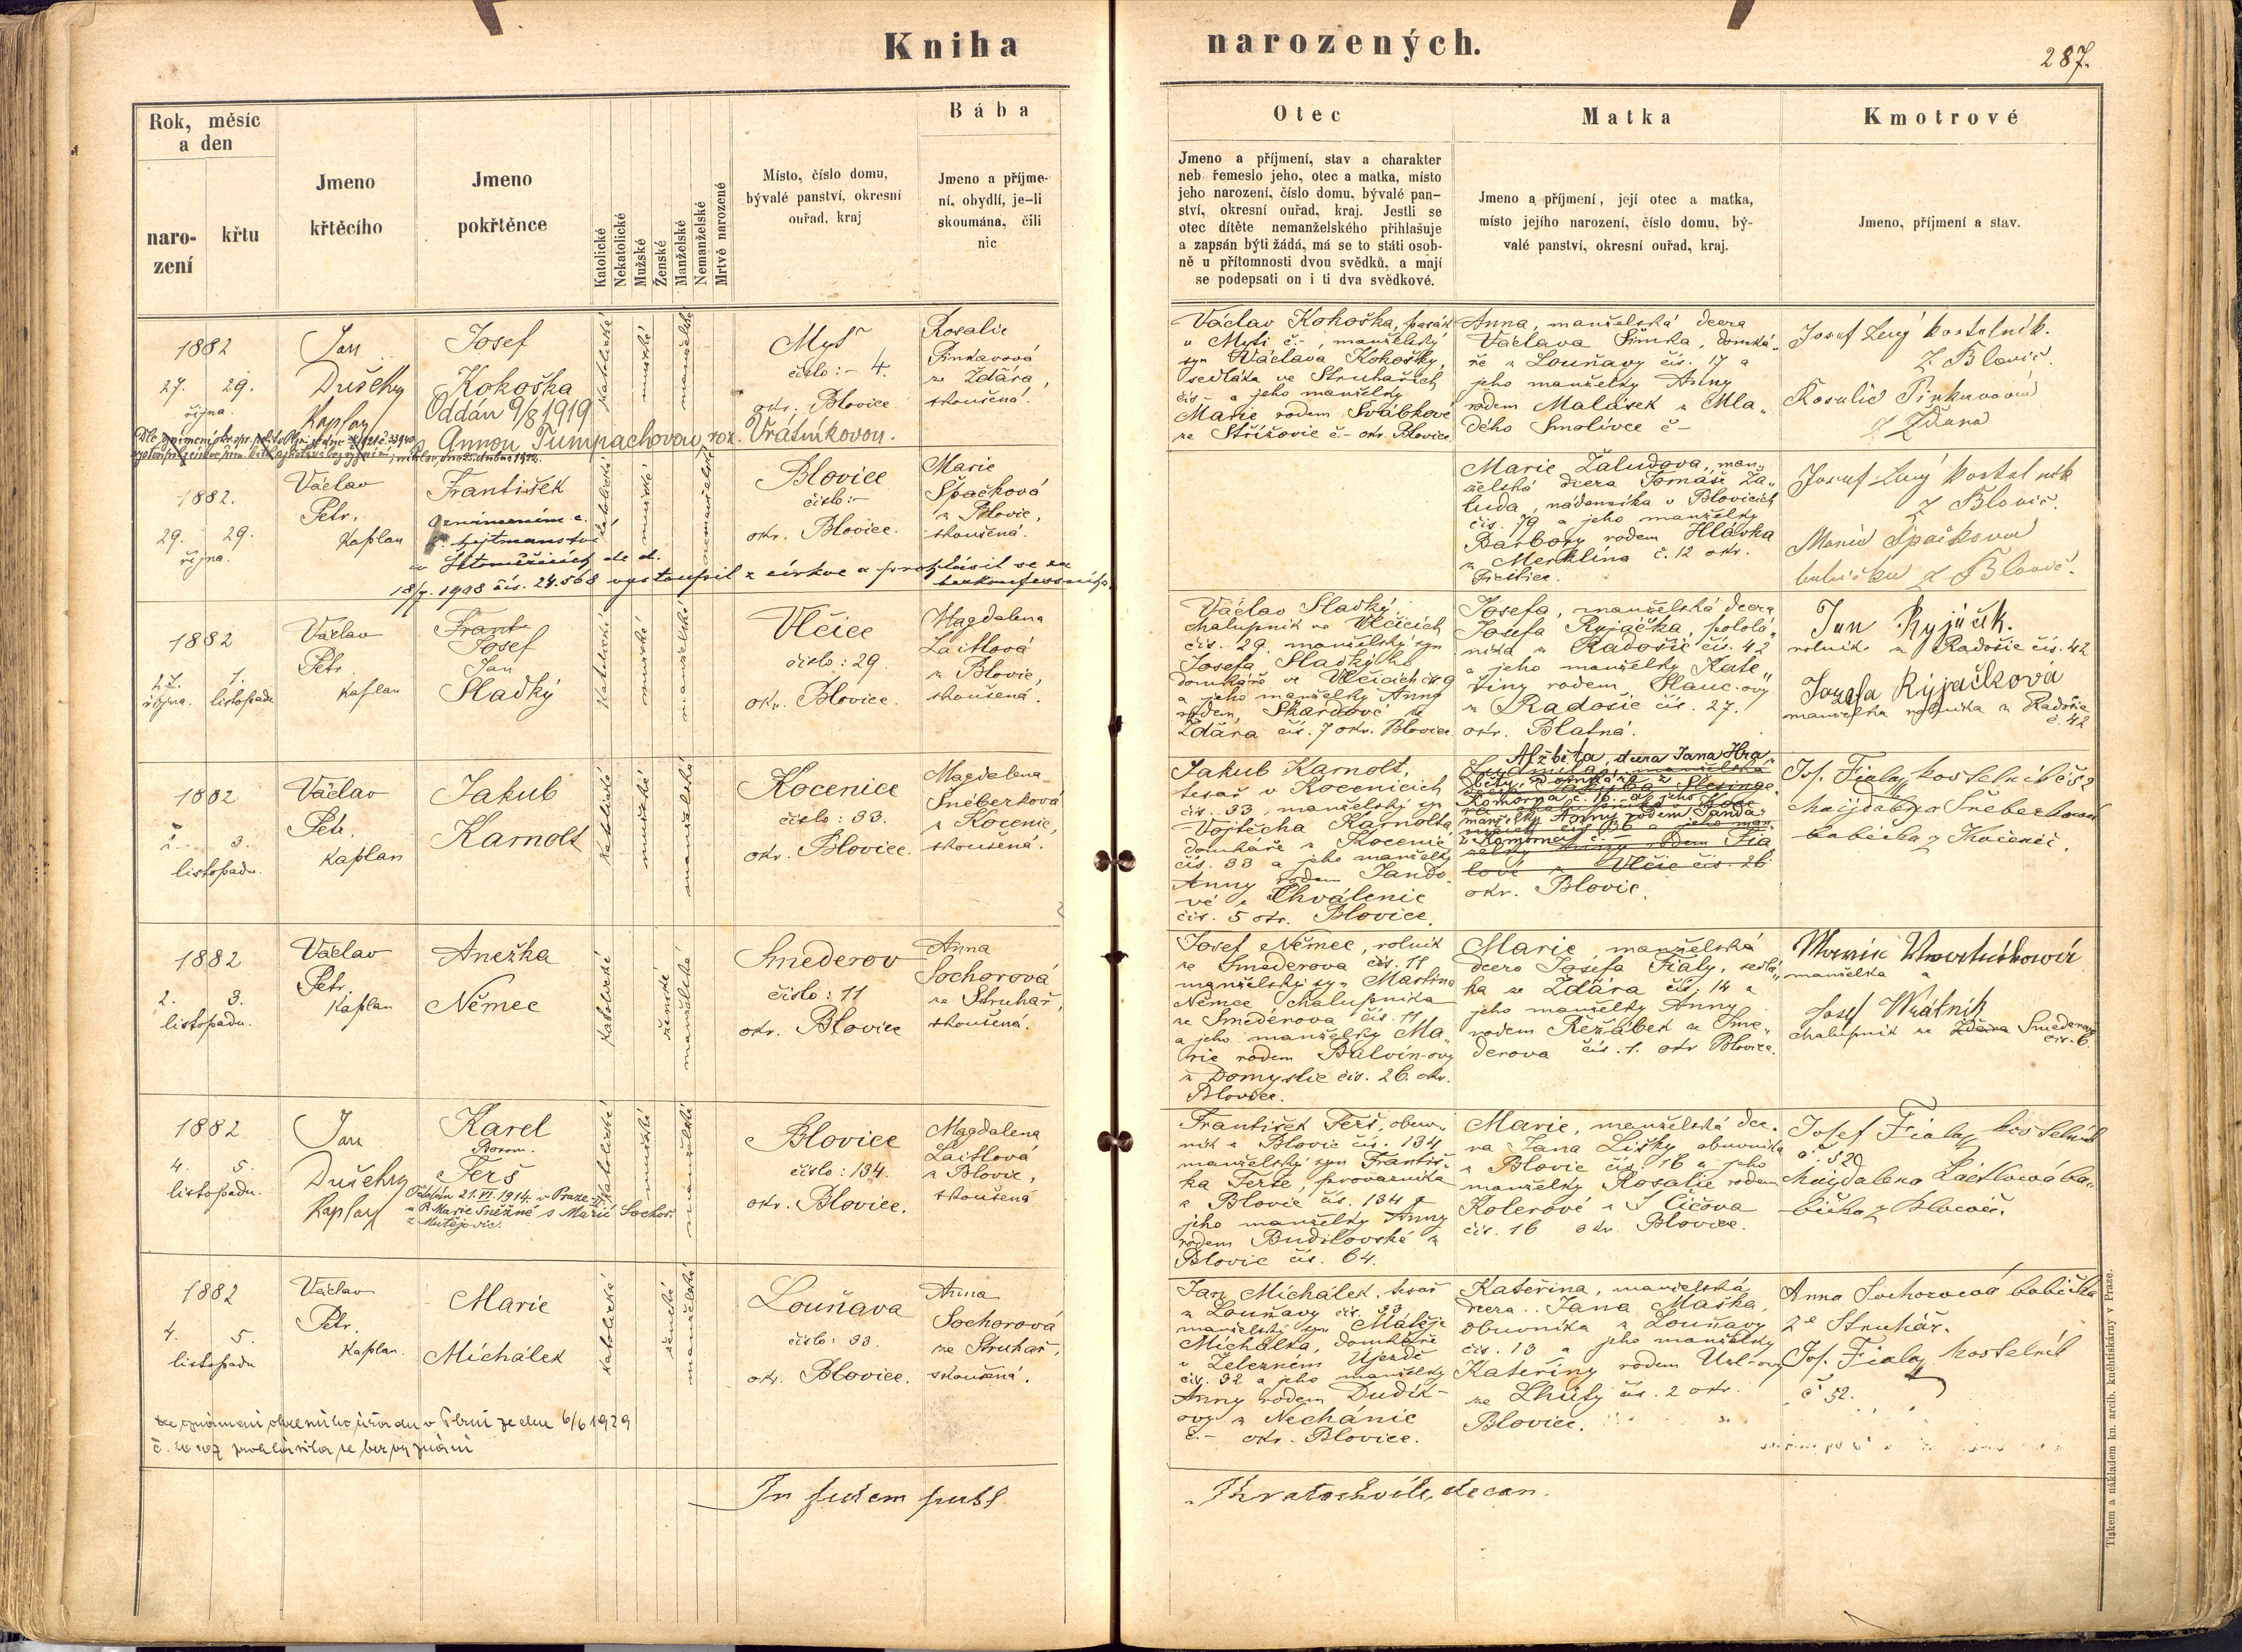 Kniha
narozených.
287.
Rok, měsíc
a den
naro-
zení
křtu
Jmeno
křtěcího
Jmeno
pokřtěnce
Katolické
Nekatolické
Mužské
Ženské
Manželské
Nemanželské
Mrtvě narozené
Místo, číslo domu,
bývalé panství, okresní
ouřad, kraj
Bába
Jmeno a příjme-
ní, obydlí, je-li
skoumána, čili
nic
Otec
Jmeno a příjmení, stav a charakter
neb řemeslo jeho, otec a matka, místo
jeho narození, číslo domu, bývalé pan-
ství, okresní ouřad, kraj. Jestli se
otec dítěte nemanželského přihlašuje
a zapsán býti žádá, má se to státi osob-
ně u přítomnosti dvou svědků, a mají
se podepsati on i ti dva svědkové.
Matka
Jmeno a příjmení, její otec a matka,
místo jejího narození, číslo domu, bý-
valé panství, okresní ouřad, kraj.
Kmotrové
Jmeno, příjmení a stav.
1882
27. 29.
října.
Jan
Dušek
Kaplan
Josef
Kokoška
Oddán 9/8 1919
s Annou Tumpachovou, roz. Vrátníkovou.
katolické
mužské
manželské
Myť
číslo:- 4.
okr. Blovice
Rosalie
Pinkavová
ze Ždára,
skoušená.
Václav Kokoška, pasák
v Myti č.-, manželský
syn Václava Kokošky,
sedláka ve Struhařích
čís - a jeho manželky
Marie rodem Švábkové
ze Střížovic č.- okr. Blovice
Anna, manželská dcera
Václava Šimka, domká-
ře z Louňavy čís. 17 a
jeho manželky Anny
rodem Malásek z Mla-
dého Smolivce č-
Josef Lený kostelník.
z Blovic.
Rosalie Pinkavová
z Ždara
1882.
29. 29.
října.
Václav
Petr.
Kaplan
František
Oznámením c.
k. hejtmanství
v Litoměřicích de d.
18/7. 1908 čís. 24.568 vystoupil z církve a prohlásil se za
bezkonfessního.
katolické
mužské
nemanželské
Blovice
číslo:-
okr. Blovice.
Marie
Špačková
z Blovic,
skoušená.
Marie Žaludova, man-
želská dcera Tomáše Ža-
luda, nádenníka v Blovicích
čís. 79 a jeho manželky
Barbory rodem Hlávka
z Merklína č. 12 okr.
Přeštice.
Josef Lený kostelník
z Blovic.
Marie Špačkova
babička z Blovic.
1882
27. 1.
října. listopadu
Václav
Petr
Kaplan
Frant
Josef
Jan
Sladký
Katolické
mužské
manželské
Vlčice
číslo: 29.
okr. Blovice.
Magdalena
Laitlová
z Blovic,
skoušená.
Václav Sladký,
chalupník ve Vlčicích
čís. 29, manželský syn
Josefa Sladkýho
domkáře ve Vlčicích čís 9
a jeho manželky Anny
rodem Skardové ze
Ždára čís. 7 okr. Blovice
Josefa, manželská dcera
Josefa Ryjáčka, pololá-
níka z Radošic čís. 42
a jeho manželky Kate-
řiny rodem Slanc-ovy
z Radošic čís. 27.
okr. Blatná.
Jan Ryjáček.
rolník z Radošic čís. 42
Jozefa Ryjačková
manželka rolníka z Radošic
č. 42
1882
2. 3.
listopadu.
Václav
Petr.
Kaplan
Jakub
Karnolt
katolické
mužské
manželské
Kocenice
číslo: 33.
okr. Blovice.
Magdalena
Šneberková
z Kocenic,
skoušená.
Jakub Karnolt,
tesař v Kocenicích
čís. 33, manželský syn
Vojtěcha Karnolta,
domkáře z Kocenic
čís. 33 a jeho manželky
Anny rodem Jando-
vé z Chválenic
čís. 5 okr. Blovice.
Alžběta, dcera Jana Hra-
manželky Anny rodem Janda-
lové z Vlčic čís. 26
okr. Blovic.
Jos. Fiala kostelník č 52
Majdalena Šneberková
babička z Kocenic.
1882
2. 3.
listopadu.
Václav
Petr.
Kaplan
Anežka
Němec
katolické
ženské
manželské
Smederov
číslo: 11
okr. Blovice
Anna
Sochorová
ze Struhař
skoušená.
Josef Němec, rolník
ze Smederova čís. 11
manželský syn Martina
Němce chalupníka
ze Smederova čís. 11
a jeho manželky Ma-
rie rodem Balvín-ovy
z Domyslic čís. 26. okr.
Blovice.
Marie, manželská
dcera Josefa Fialy, sedlá-
ka ze Ždára čís. 14 a
jeho manželky Anny
rodem Řežábek ze Sme-
derova čís. 1. okr Blovice.
manželka a
Josef Wrátník
chalupník ze Ždára Smederova
čís. 6.
1882
4. 5.
listopadu.
Jan
Dušek
Kaplan
Karel
Borom.
Terš
Oddán 21.VI.1914. v Praze-II.
u P. Marie Sněžné s Marií Sochor.
z Mutějovic.
Katolické
mužské
manželské
Blovice
číslo: 134.
okr. Blovice.
Magdalena
Laitlová
z Blovic,
skoušená
František Terš, obuv-
ník z Blovic čís. 134
manželský syn Františ-
ka Terše, provazníka
z Blovic čís. 134 a
jeho manželky Anny
rodem Budilovské z
Blovic čís. 64.
Marie, manželská dce-
ra Jana Lišky obuvníka
z Blovic čís. 16 a jeho
manželky Rosalie rodem
Kolerové z Číčova
čís. 16 okr. Blovice.
Josef Fiala kostelník
č. 52
Majdalena Laitlová ba-
bička z Blovic.
1882
4. 5.
listopadu
Václav
Petr.
Kaplan.
Marie
Michálek
katolické
ženské
manželské
Louňava
číslo: 33.
okr. Blovice.
Anna
Sochorová
ze Struhař,
skoušená.
Jan Michálek, tesař
z Louňavy čís. 33
manželský syn Matěje
Michálka, domkáře
v Železném Újezdě
čís. 32 a jeho manželky
Anny rodem Dudík-
ovy z Nechánic
č.- okr. Blovice.
Kateřina, manželská
dcera Jana Maška,
obuvníka z Louňavy
čís. 13 a jeho manželky
Kateřiny rodem Uzl-ovy
ze Lhůty čís. 2 okr.
Blovice.
Anna Sochorová babička
ze Struhař.
Jos. Fiala kostelník
č 52.
dle oznámení okresního úřadu v Plzni ze dne 6/6 1929
prohlásila se bez vyznání
In fidem publ
Thratochvile, decan.
Tiskem a nákladem kn. arcib. kněhtiskárny v Praze.